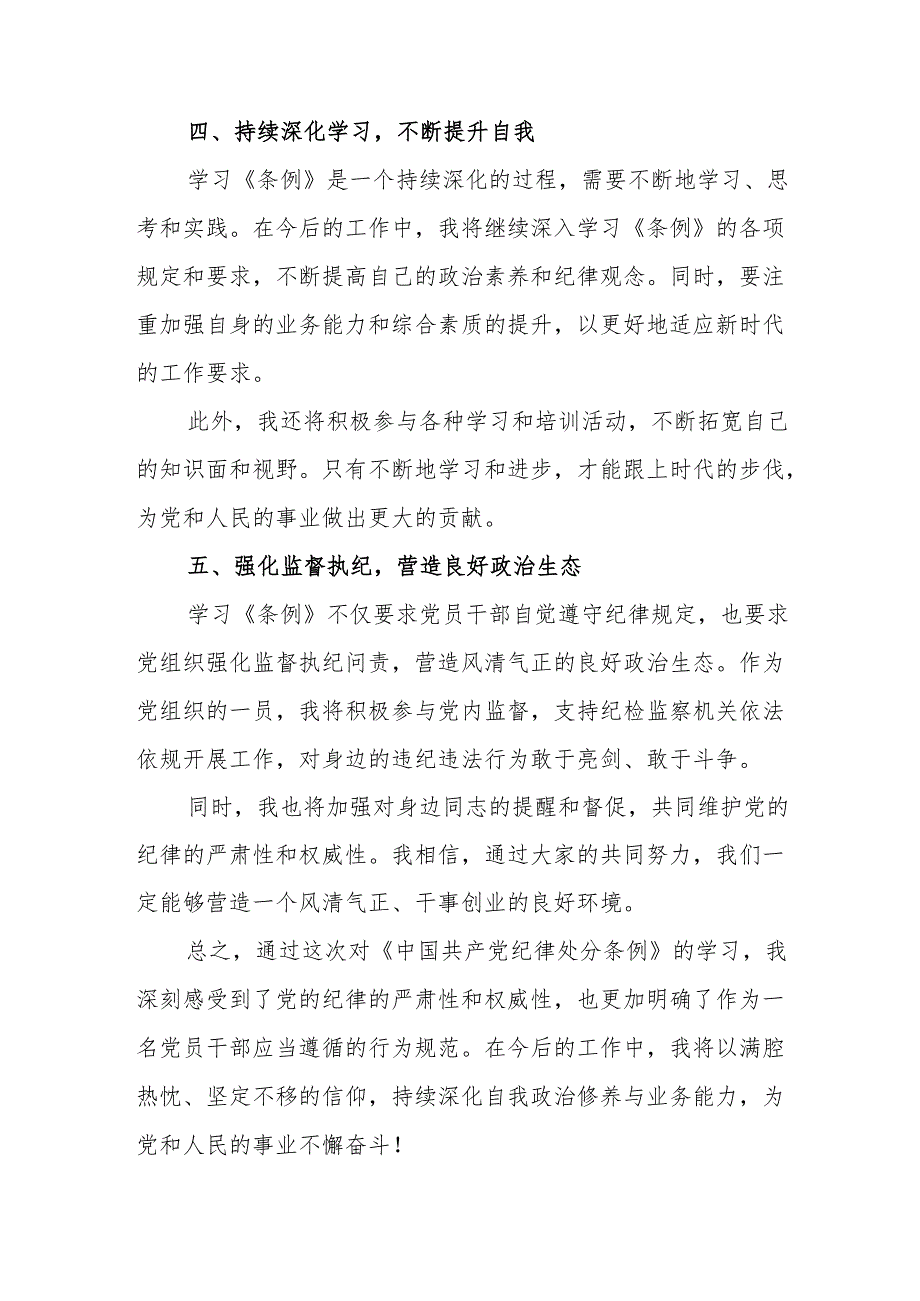 四、持续深化学习，不断提升自我
学习《条例》是一个持续深化的过程，需要不断地学习、思
考和实践。在今后的工作中，我将继续深入学习《条例》的各项
规定和要求，不断提高自己的政治素养和纪律观念。同时，要注
重加强自身的业务能力和综合素质的提升，以更好地适应新时代
的工作要求。
此外，我还将积极参与各种学习和培训活动，不断拓宽自己
的知识面和视野。只有不断地学习和进步，才能跟上时代的步伐，
为党和人民的事业做出更大的贡献。
五、强化监督执纪，营造良好政治生态
学习《条例》不仅要求党员干部自觉遵守纪律规定，也要求
党组织强化监督执纪问责，营造风清气正的良好政治生态。作为
党组织的一员，我将积极参与党内监督，支持纪检监察机关依法
依规开展工作，对身边的违纪违法行为敢于亮剑、敢于斗争。
同时，我也将加强对身边同志的提醒和督促，共同维护党的
纪律的严肃性和权威性。我相信，通过大家的共同努力，我们一
定能够营造一个风清气正、干事创业的良好环境。
总之，通过这次对《中国共产党纪律处分条例》的学习，我
深刻感受到了党的纪律的严肃性和权威性，也更加明确了作为一
名党员干部应当遵循的行为规范。在今后的工作中，我将以满腔
热忱、坚定不移的信仰，持续深化自我政治修养与业务能力，为
党和人民的事业不懈奋斗！